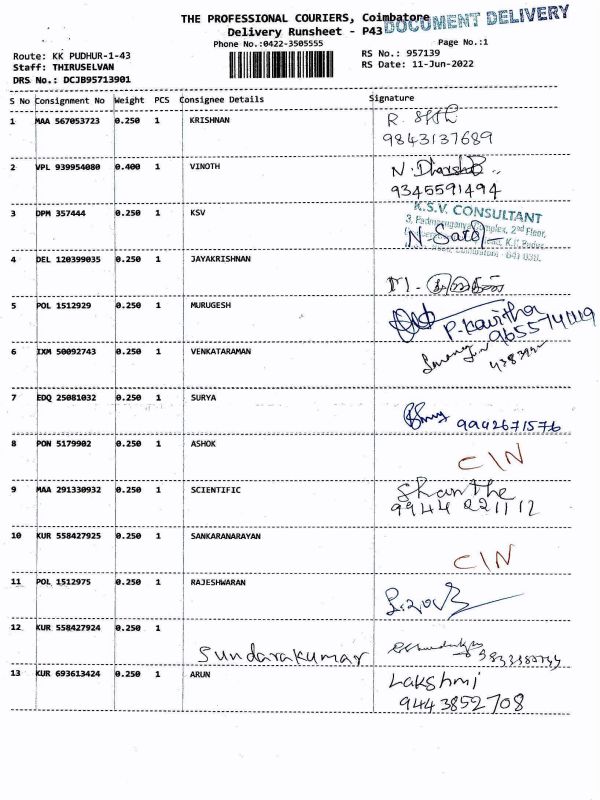 THE PROFESSIONAL COURIERS, Coimbatore
DOCUMENT DELIVERY
Delivery Runsheet - P43
Phone No.:0422-3505555
Page No.:1
Route: KK PUDHUR-1-43
RS No.: 957139
Staff: THIRUSELVAN
RS Date: 11-Jun-2022
DRS No.: DCJB95713901
S No Consignment No Weight PCS Consignee Details Signature
1 MAA 567053723 0.250 1 KRISHNAN R.
9843137689
2 VPL 939954080 0.400 1 VINOTH N.
9345591494
3 DPM 357444 0.250 1 KSV K.S.V. CONSULTANT
3, Complex, 2nd Floor,
4 DEL 120399035 0.250 1 JAYAKRISHNAN
M.
5 POL 1512929 0.250 1 MURUGESH
P. Kavitha
6 IXM 50092743 0.250 1 VENKATARAMAN
7 EDQ 25081032 0.250 1 SURYA
9942671576
8 PON 5179902 0.250 1 ASHOK
C/N
9 MAA 291330932 0.250 1 SCIENTIFIC Shanthe
9944 221112
10 KUR 558427925 0.250 1 SANKARANARAYAN
C/N
11 POL 1512975 0.250 1 RAJESHWARAN
12 KUR 558427924 0.250 1
Sundarakumar
13 KUR 693613424 0.250 1 ARUN Lakshmi
9443852708